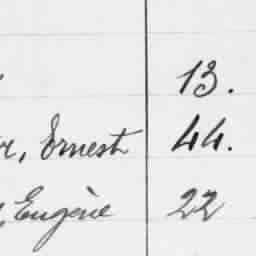 13.
r, Ernest 44.
Eugène 22